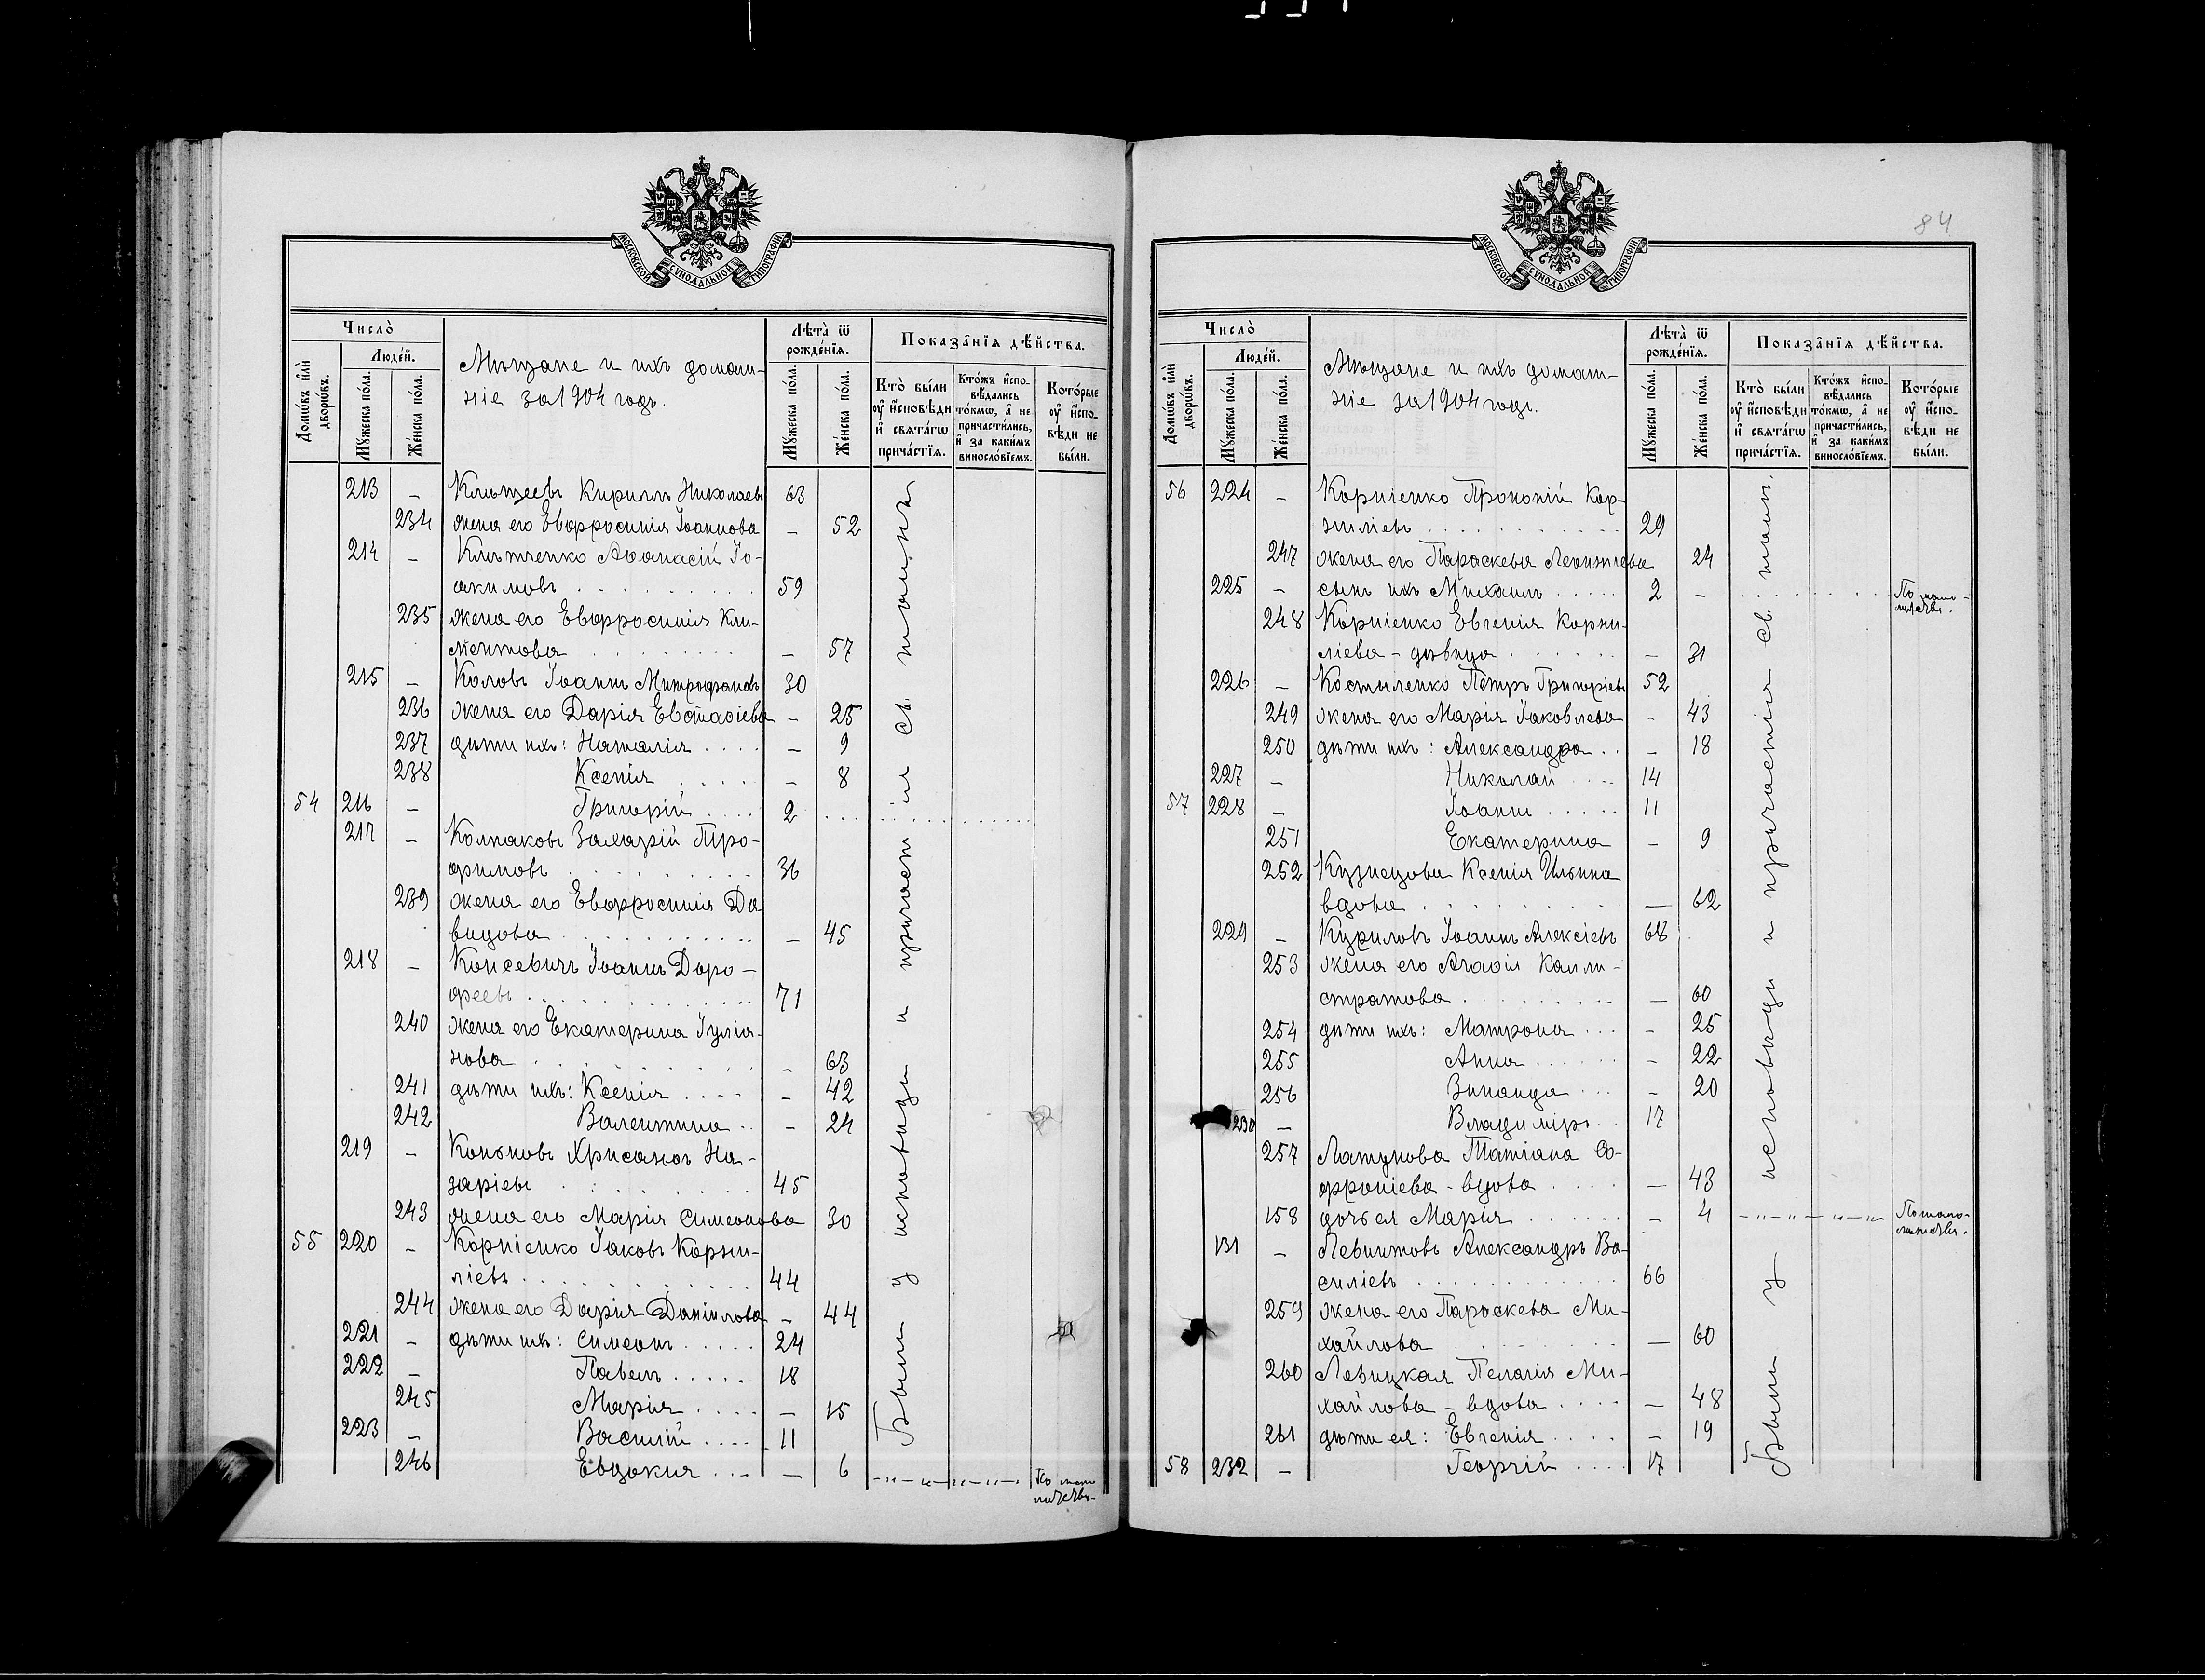 МОСКОВСКОЙ СѴНОДАЛЬНОЙ ТИПОГРАФІИ
Число̀
Людей.
Домѡвъ и҆лѝ дворѡвъ.
Мꙋжеска по́ла.
Же́нска по́ла.
Мѣщане и ихъ домаш-
ніе за 1904 годъ.
Лѣта̀ ѿ рожде́нїѧ.
Мꙋжеска по́ла.
Же́нска по́ла.
Показа̑нїѧ дѣ́йства.
Кто̀ бы́ли оу҆ и҆сповѣди и҆ свѧта́гѡ прича́стїѧ.
Кто́жъ и҆спо-вѣдались то́кмѡ, а҆ не причасти́лись, и҆ за каки́мъ винослові́емъ.
Кото́рые оу҆ и҆спо-вѣди не бы́ли.
213 – Клищеевъ Кириллъ Николаевъ 63
234 жена его Евфросинія Іоаннова – 52
214 – Клитченко Аѳанасій Іо-
акимовъ 59
235 жена его Евфросинія Кли-
ментова – 57
215 – Коловъ Іоаннъ Митрофановъ 30
236 жена его Дарія Евстафіева – 25
237 дѣти ихъ: Наталія – 9
238 Ксенія – 8
54 216 – Григорій 2
217 – Колпаковъ Захарій Тро-
фимовъ 36
239 жена его Евфросинія Да-
видова – 45
218 – Консевичъ Іоаннъ Доро-
феевъ 71
240 жена его Екатерина Іуліа-
нова – 63
241 дѣти ихъ: Ксенія – 42
242 Валентина – 24
219 – Коньковъ Хрисанѳъ На-
заріевъ 45
243 жена его Марія Симеонова 30
55 220 – Корніенко Іаковъ Корни-
ліевъ 44
244 жена его Дарія Даніилова – 44
221 – дѣти ихъ: Симеонъ 24
222 – Павелъ 18
245 Марія – 15
223 – Василій 11
246 Евдокія – 6
По мало
лѣтств.
Были у исповѣди и причастія Св. таинъ
84
МОСКОВСКОЙ СѴНОДАЛЬНОЙ ТИПОГРАФІИ
Число̀
Людей.
Домѡвъ и҆лѝ дворѡвъ.
Мꙋжеска по́ла.
Же́нска по́ла.
Мѣщане и ихъ домаш-
ніе за 1904 годъ.
Лѣта̀ ѿ рожде́нїѧ.
Мꙋжеска по́ла.
Же́нска по́ла.
Показа̑нїѧ дѣ́йства.
Кто̀ бы́ли оу҆ и҆сповѣди и҆ свѧта́гѡ прича́стїѧ.
Кто́жъ и҆спо-вѣдались то́кмѡ, а҆ не причасти́лись, и҆ за каки́мъ винослові́емъ.
Кото́рые оу҆ и҆спо-вѣди не бы́ли.
56 224 – Корніенко Прокопій Кор-
ниліевъ 29
247 жена его Параскева Леонтіева 24
225 – сынъ ихъ Михаилъ 2 – По мало-
лѣтств.
248 Корніенко Евгенія Корни-
ліева – дѣвица – 31
226 – Костыленко Петръ Григоріевъ 52
249 жена его Марія Іаковлева – 43
250 дѣти ихъ: Александра – 18
227 – Николай 14
57 228 – Іоаннъ 11
251 Екатерина – 9
252 Кузнецова Ксенія Ильина
вдова – 62
229 – Куриловъ Іоаннъ Алексіевъ 68
253 жена его Агафія Калли-
стратова – 60
254 дѣти ихъ: Матрона – 25
255 Анна – 22
256 Зинаида – 20
230 – Владиміръ 17
257 Латунова Татіана Со-
фроніева – вдова – 43
158 дочь ея Марія – 4 По мало-
лѣтств.
131 – Левинтовъ Александръ Ва-
силіевъ 66
259 жена его Параскева Ми-
хайлова – 60
260 Левицкая Пелагія Ми-
хайлова – вдова – 48
261 дѣти ея: Евгенія – 19
58 232 – Георгій 17
Были у исповѣди и причастія Св. таинъ.